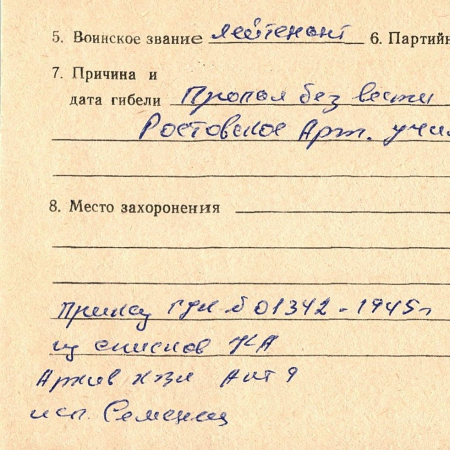 5. Воинское звание лейтенант 6. Партийн
7. Причина и
дата гибели Пропал без вести
Ростовское Арт. учил
8. Место захоронения
Приказ ГУК № 01342 - 1945г
из списков КА
Архив
исп. Семенец